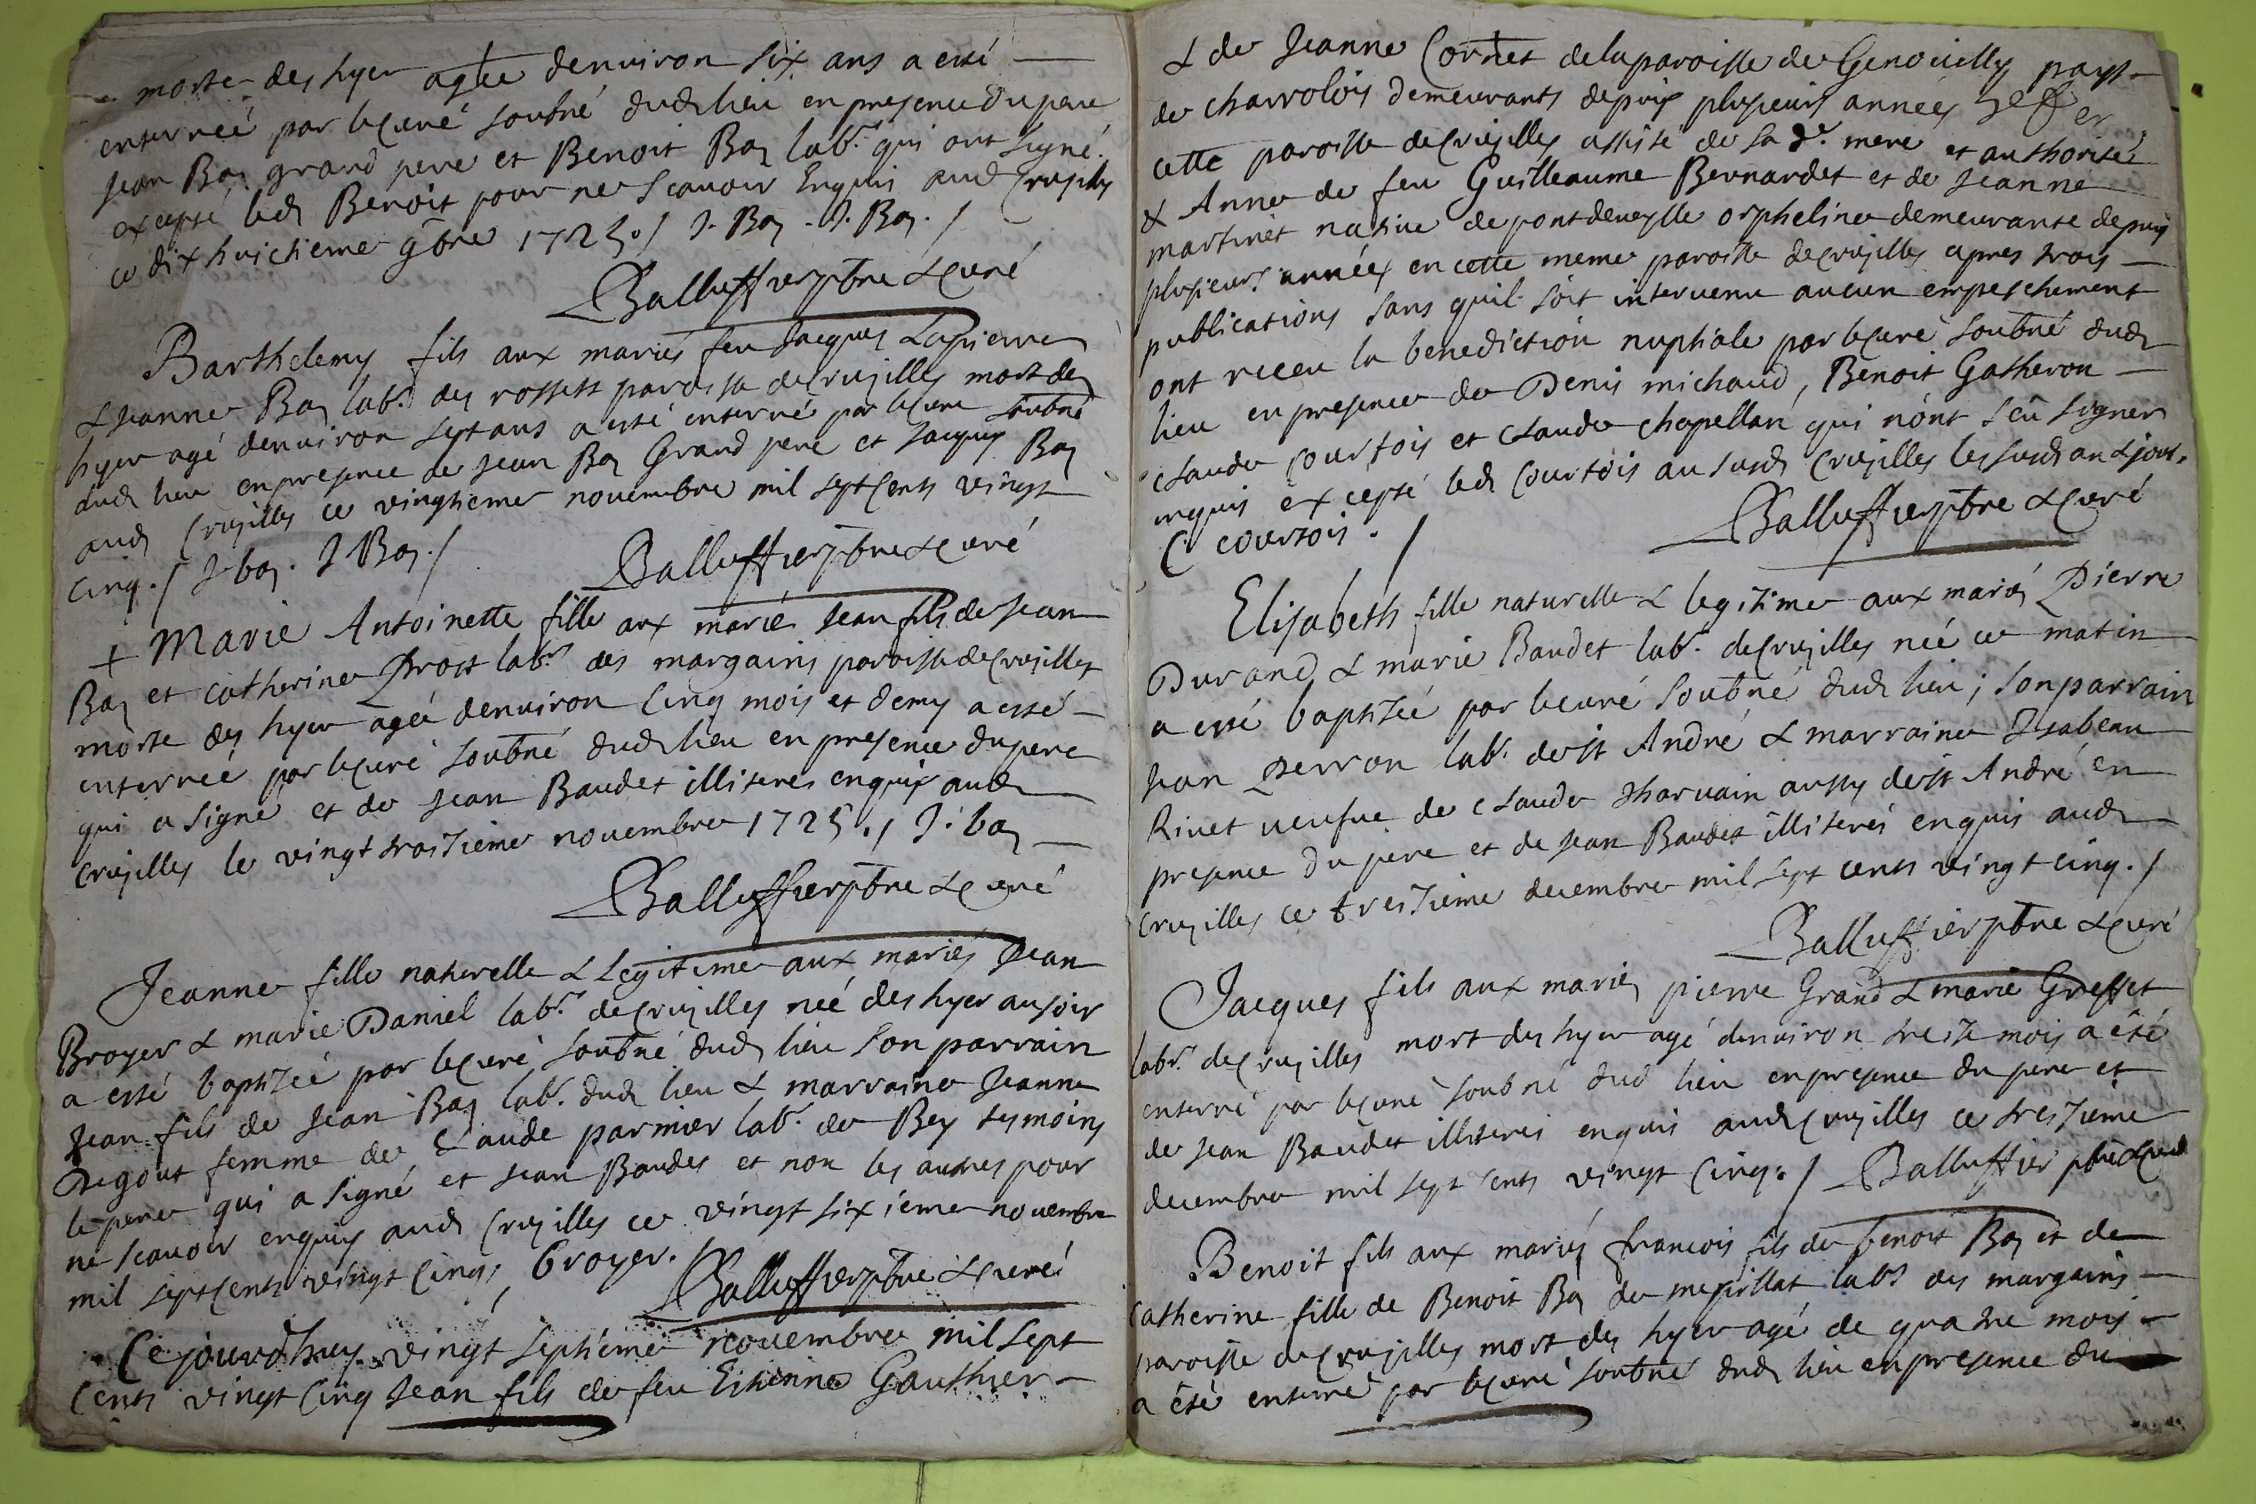 morte des hyer agée denuiron six ans a esté
enterreé par le curé soubné dud lieu en presence du pere
Jean Bay grand pere et Benoit Bay labr. qui ont signé
excepté led Benoit pour ne scauoir Enquis aud Cruzilles
ce dix huictieme 9bre 1725./ J. Bay. J. Bay./
Balluffier ptre & curé
Barthelemy fils aux mariés feu Jacques Lapierre
& Jeanne Bay labr. des rossets paroisse de Cruzilles mort des
hyer agé denuiron sept ans a esté enterré par le curé soubné
dud lieu en presence de Jean Bay Grand pere et Jacques Bay
aud Cruzilles ce vingtieme nouembre mil sept Cents vingt
cinq./ J bay. J Bay./
Balluffier ptre & curé
+ Marie Antoinette fille aux mariés Jean fils de Jean
Bay et catherine Prost labrs des margains paroisse de Cruzilles
morte des hyer ageé denuiron Cinq mois et demy a esté
enterreé par le curé soubné dud lieu en presence du pere
qui a signé et de Jean Baudet illiteres enquis aud
cruzilles le vingt troizieme nouembre 1725./ J. bay
Balluffier ptre & curé
Jeanne fille naturelle & Legitime aux mariés Jean
Broyer & marie Daniel labrs. de Cruzilles neé des hyer au soir
a esté baptizeé par le curé soubné dud lieu son parrain
Jean fils de Jean Bay labr. dud lieu & marraine Jeanne
Degout femme de Claude parmier labr. de Bey tesmoins
le pere qui a signé et Jean Baudet et non les autres pour
ne scauoir enquis aud Cruzilles ce vingt sixieme nouembre
mil sept Cents vingt Cinq, broyer./
Balluffier ptre & curé
Ce jourdhuy vingt septieme nouembre mil sept
Cents vingt Cinq Jean fils de feu Estienne Gauthier
& de Jeanne Cornet de la paroisse de Genouilly pays
de charrolois demeurants depuis plusieurs années en
cette paroisse de Cruzilles assisté de sa de. mere et authorisé
& Anne de feu Guilleaume Bernardet et de Jeanne
martinet natiue de pontdeueylle orpheline demeurante depuis
plusieurs années en cette meme paroisse de Cruzilles apres trois
publications sans quil soit interuenu aucun empeschement
ont receu la benediction nuptiale par le curé soubné dud
lieu en presence de Denis michaud, Benoit Gatheron
claude Courtois et Claude chapellan qui nont sçû signer
enquis excepté led Courtois au susd Cruzilles les susd an & jour.
C courtois./
Balluffier ptre & curé
Elisabeth fille naturelle & legitime aux mariés Pierre
Durand & marie Baudet labrs. de Cruzilles neé ce matin
a esté baptizeé par le curé soubné dud lieu; son parrain
Jean perron labr. de st André & marraine Izabeau
Riuet veufue de Claude Tharuain aussy de st André en
presence du pere et de Jean Baudet illiterés enquis aud
cruzilles ce treizieme decembre mil sept cents vingt cinq./
Balluffier ptre & curé
Jacques fils aux mariés pierre Grand & marie Greffet
labrs. de Cruzilles mort des hyer agé denuiron treize mois a été
enterré par le curé soubné dud lieu en presence du pere et
de Jean Baudet illiteres enquis aud Cruzilles ce treizieme
decembre mil sept cents vingt Cinq./ Balluffier ptre & curé
Benoit fils aux mariés francois fils de benoit Bay et de
Catherine fille de Benoit Bay de mezirillat labrs des margains
paroisse de Cruzilles mort des hyer agé de quatre mois
a été enterré par le curé soubné dud lieu en presence du